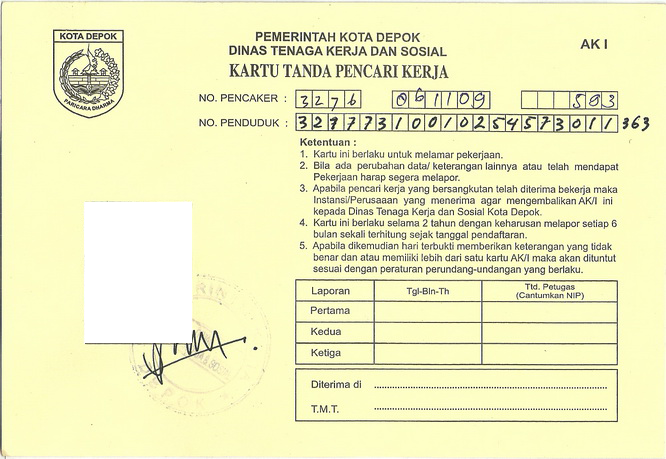 KOTA DEPOK
PARICARA DHARMA
PEMERINTAH KOTA DEPOK
DINAS TENAGA KERJA DAN SOSIAL
KARTU TANDA PENCARI KERJA
AK I
NO. PENCAKER : 3276 061109 583
NO. PENDUDUK : 3277731001025457301 1 363
Ketentuan :
1. Kartu ini berlaku untuk melamar pekerjaan.
2. Bila ada perubahan data/ keterangan lainnya atau telah mendapat
Pekerjaan harap segera melapor.
3. Apabila pencari kerja yang bersangkutan telah diterima bekerja maka
Instansi/Perusaaan yang menerima agar mengembalikan AK/I ini
kepada Dinas Tenaga Kerja dan Sosial Kota Depok.
4. Kartu ini berlaku selama 2 tahun dengan keharusan melapor setiap 6
bulan sekali terhitung sejak tanggal pendaftaran.
5. Apabila dikemudian hari terbukti memberikan keterangan yang tidak
benar dan atau memiliki lebih dari satu kartu AK/I maka akan dituntut
sesuai dengan peraturan perundang-undangan yang berlaku.
Laporan Tgl-Bln-Th Ttd. Petugas
(Cantumkan NIP)
Pertama
Kedua
Ketiga
Diterima di
T.M.T.